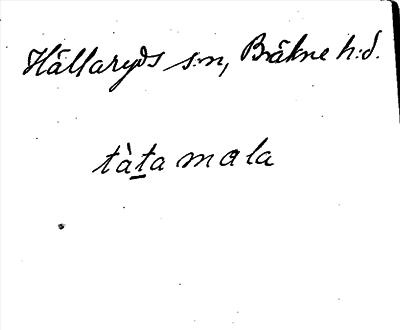 Hällaryds s:n, Bräkne h:d.
tàṯa mala